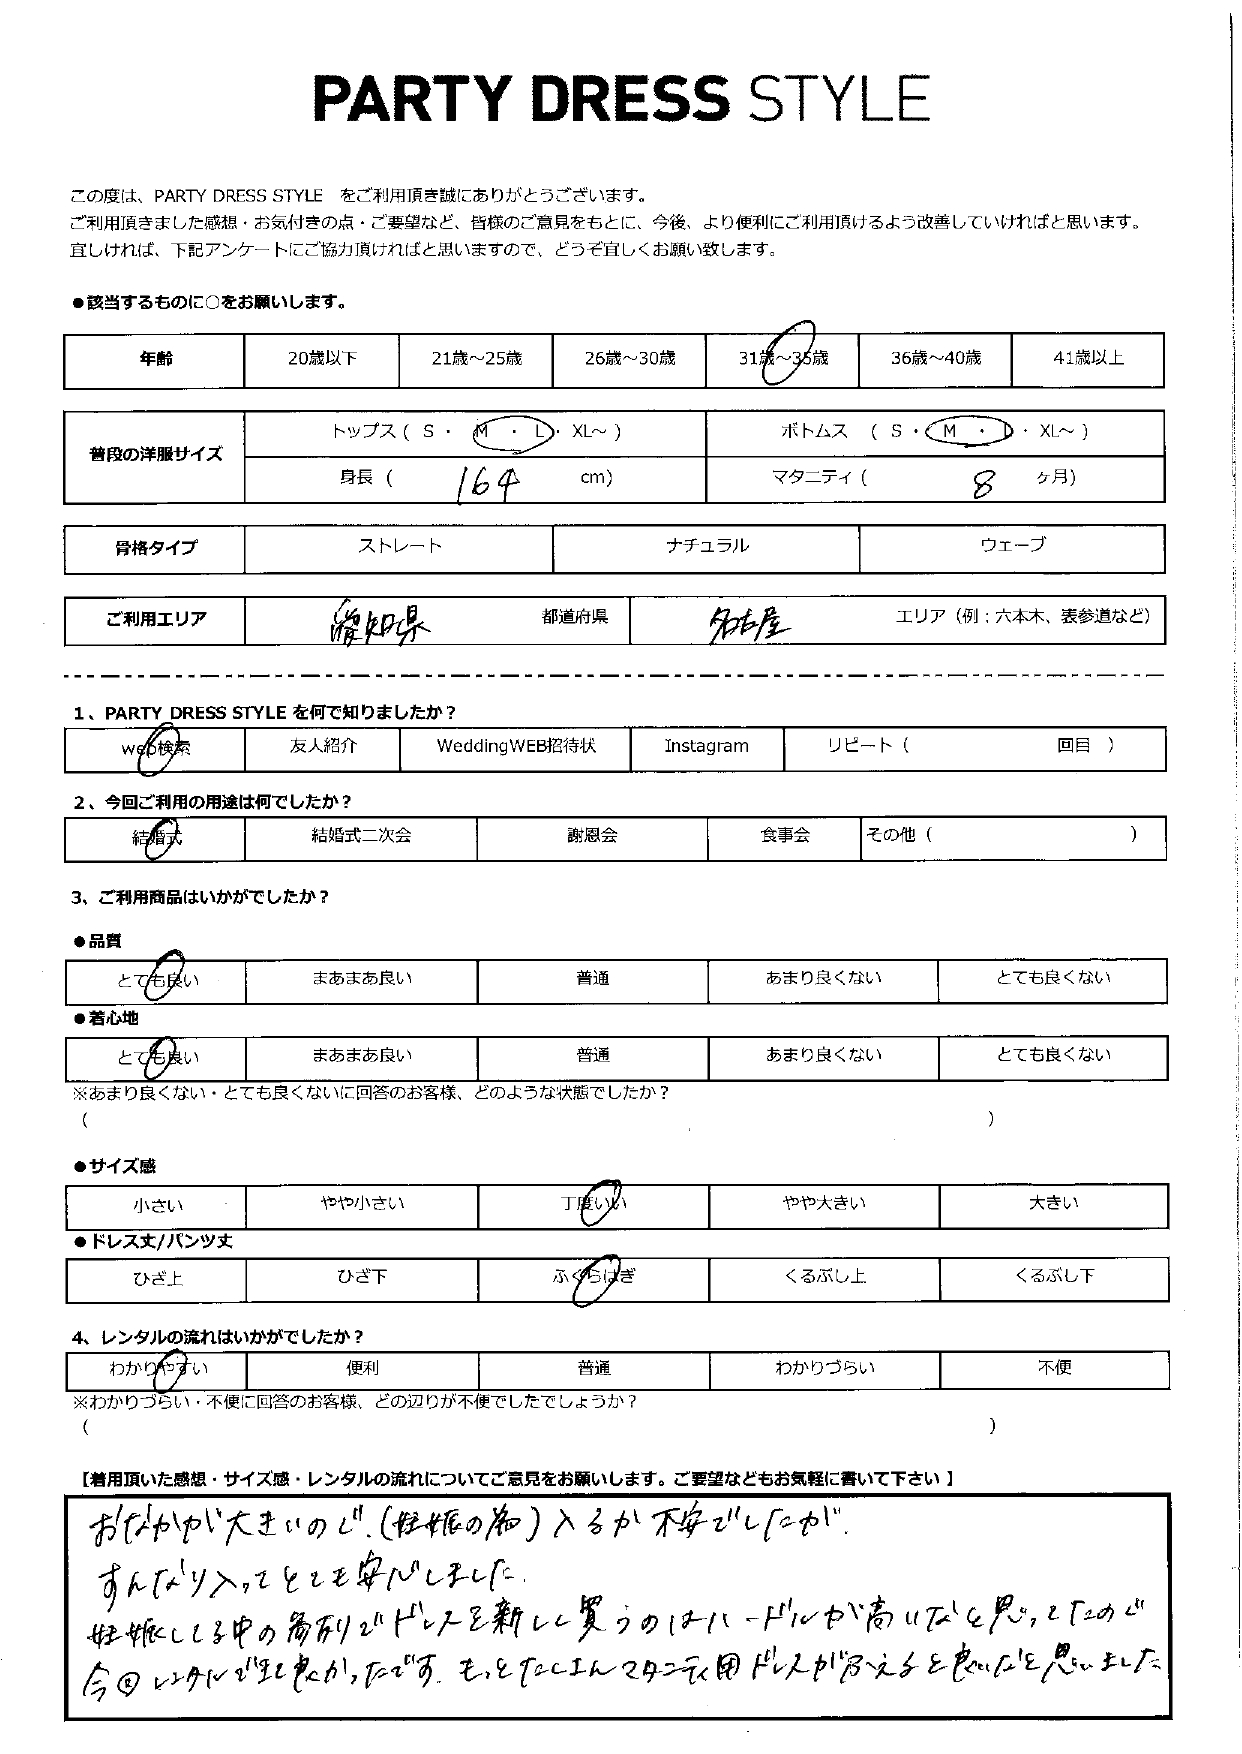 PARTY DRESS STYLE
この度は、PARTY DRESS STYLE をご利用頂き誠にありがとうございます。
ご利用頂きました感想・お気付きの点・ご要望など、皆様のご意見をもとに、今後、より便利にご利用頂けるよう改善していければと思います。
宜しければ、下記アンケートにご協力頂ければと思いますので、どうぞ宜しくお願い致します。
●該当するものに○をお願いします。
年齢 20歳以下 21歳～25歳 26歳～30歳 31歳～35歳 36歳～40歳 41歳以上
普段の洋服サイズ トップス ( S ・ M ・ L ・ XL～ ) ボトムス ( S ・ M ・ L ・ XL～ )
身長 ( 164 cm) マタニティ ( 8 ヶ月)
骨格タイプ ストレート ナチュラル ウェーブ
ご利用エリア 愛知県 都道府県 名古屋 エリア（例：六本木、表参道など）
1、PARTY DRESS STYLE を何で知りましたか？
web検索 友人紹介 WeddingWEB招待状 Instagram リピート ( 回目 )
2、今回ご利用の用途は何でしたか？
結婚式 結婚式二次会 謝恩会 食事会 その他 ( )
3、ご利用商品はいかがでしたか？
●品質
とても良い まあまあ良い 普通 あまり良くない とても良くない
●着心地
とても良い まあまあ良い 普通 あまり良くない とても良くない
※あまり良くない・とても良くないに回答のお客様、どのような状態でしたか？
( )
●サイズ感
小さい やや小さい 丁度いい やや大きい 大きい
●ドレス丈/パンツ丈
ひざ上 ひざ下 ふくらはぎ くるぶし上 くるぶし下
4、レンタルの流れはいかがでしたか？
わかりやすい 便利 普通 わかりづらい 不便
※わかりづらい・不便に回答のお客様、どの辺りが不便でしたでしょうか？
( )
【着用頂いた感想・サイズ感・レンタルの流れについてご意見をお願いします。ご要望などもお気軽に書いて下さい 】
おなかが大きいので、(妊娠の為) 入るか不安でしたが、
すんなり入ってとても安心しました。
妊娠してる中の參列でドレスを新しく買うのはハードルが高いなと思ってたので
今回レンタルできて良かったです。もっとたくさんマタニティ用ドレスが増えると良いなと思いました